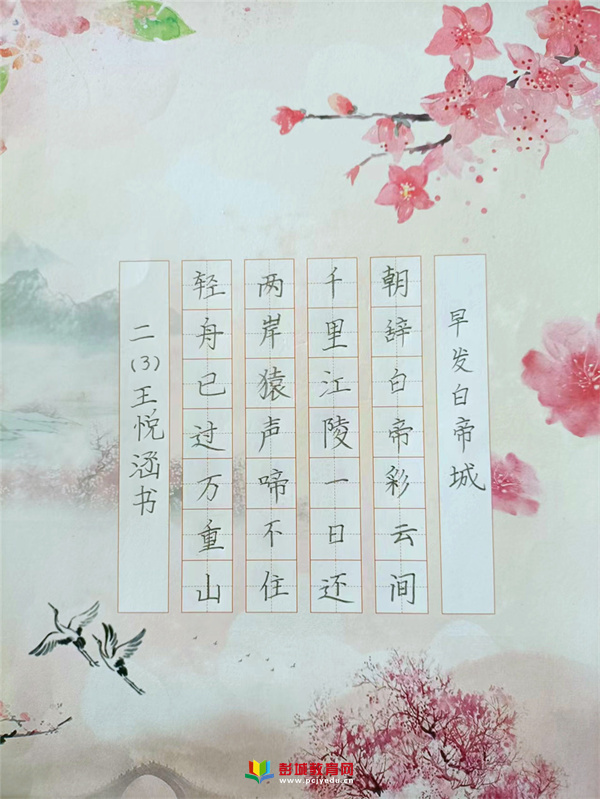 早发白帝城
朝辞白帝彩云间
千里江陵一日还
两岸猿声啼不住
轻舟已过万重山
二(3)王悦涵书
彭城教育网
www.pcjyedu.cn